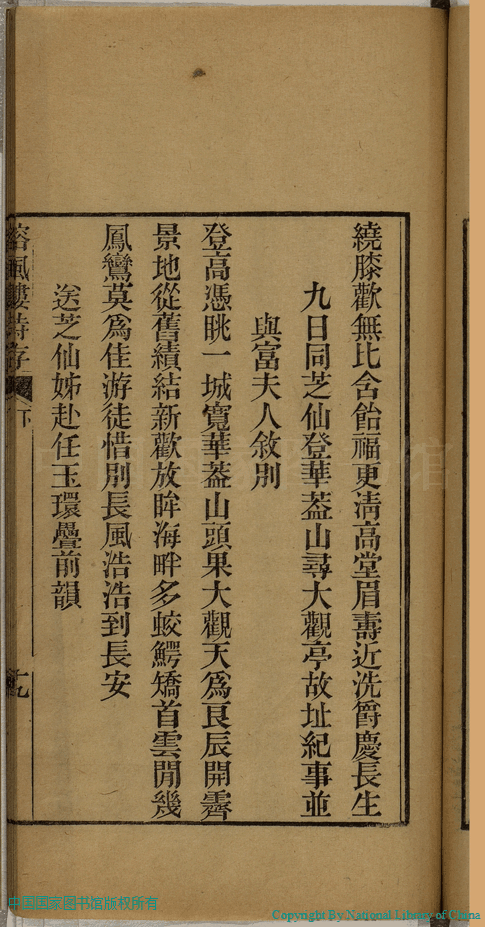 繞膝歡無比含飴福更淸高堂眉壽近洗爵慶長生
九日同芝仙登華葢山尋大觀亭故址紀事並
與富夫人敘別
登高憑眺一城寬華葢山頭果大觀天爲良辰開霽
景地從舊績結新歡放眸海畔多蛟鰐矯首雲閒幾
鳳鸞莫爲佳游徒惜別長風浩浩到長安
送芝仙姊赴任玉環疊前韻
樓詩存 下
十九
中国国家图书馆版权所有
Copyright By National Library of China